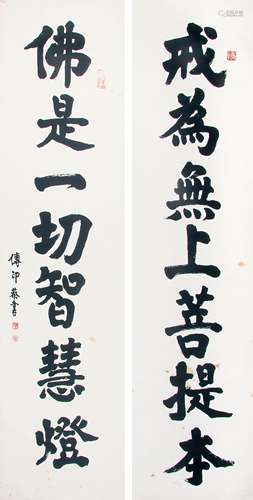 戒為無上菩提本
佛是一切智慧燈
傳印恭書